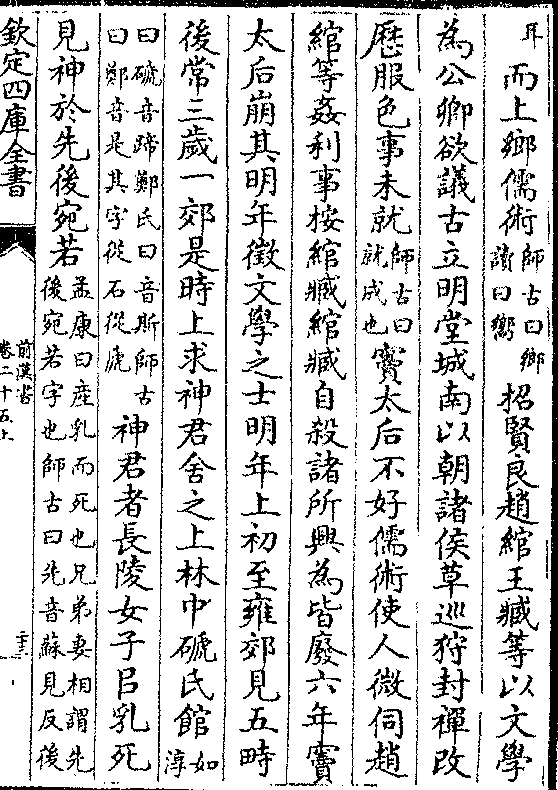 耳而上鄉儒術師古曰鄉讀曰嚮招賢良趙綰王臧等以文學
為公卿欲議古立明堂城南以朝諸侯草巡狩封禪改
歴服色事未就師古曰就成也竇太后不好儒術使人微伺趙
綰等姦利事按綰臧綰臧自殺諸所興為皆廢六年竇
太后崩其明年徵文學之士明年上初至雍郊見五畤
後常三歲一郊是時上求神君舍之上林中磃氏館如淳
曰磃音蹄鄭氏曰音斯師古曰鄭音是其字從石從虒神君者長陵女子㠯乳死
見神於先後宛若孟康曰産乳而死也兄弟妻相謂先後宛若字也師古曰先音蘇見反後
欽定四庫全書
前漢書
卷二十五上
二十三